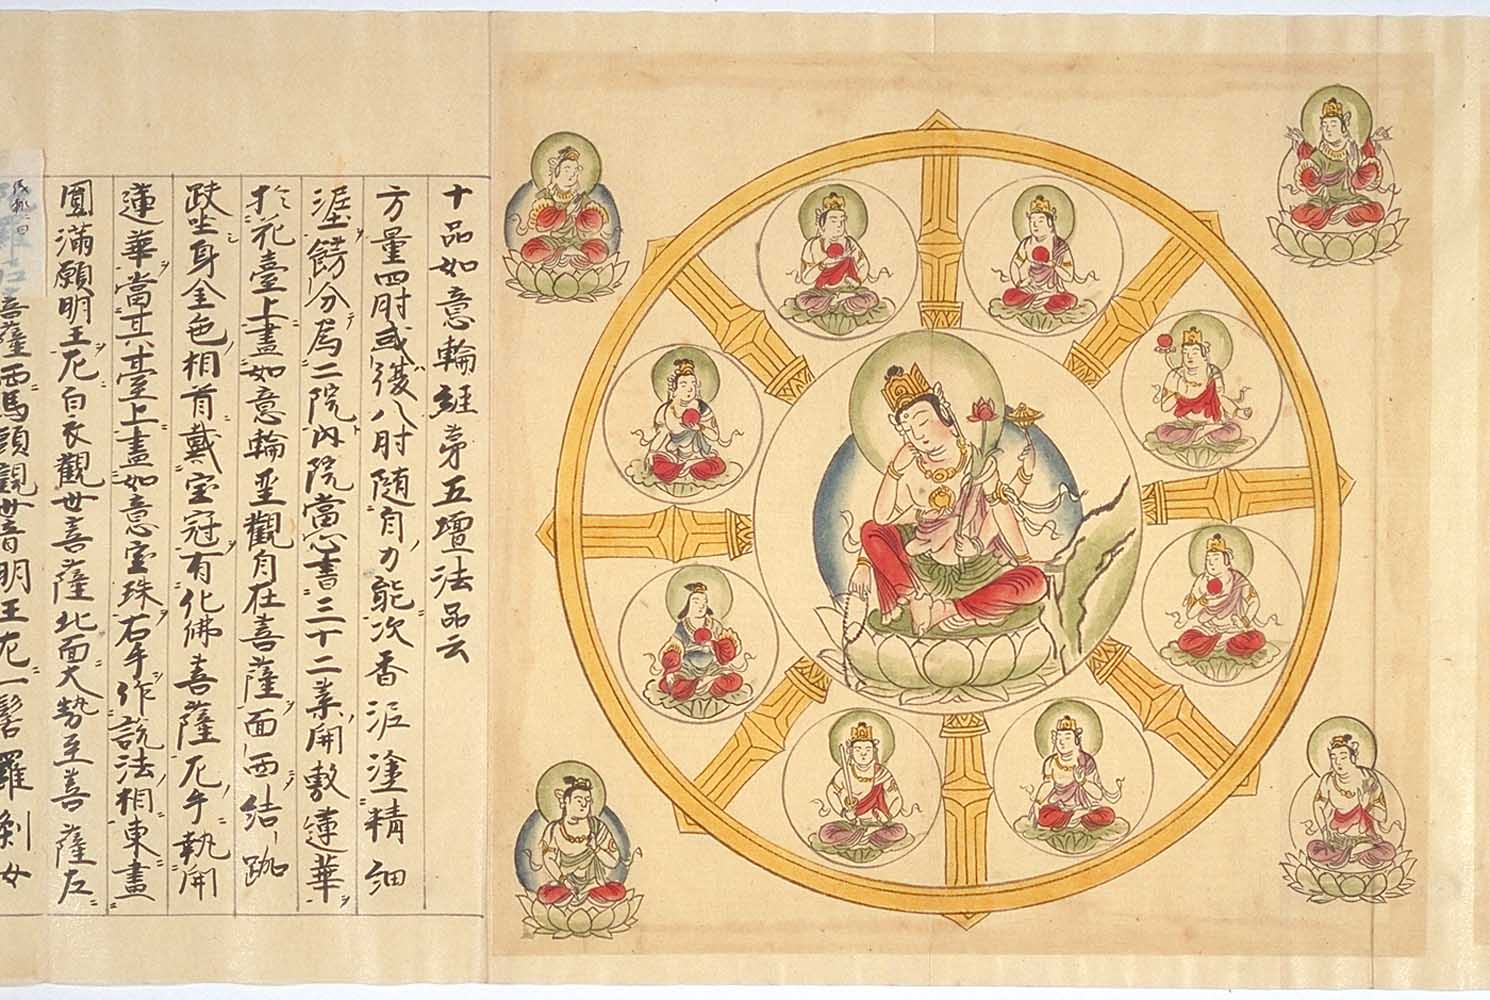 十品如意輪経第五壇法品云
方量四肘或復八肘随自力能次香泥塗精細
泥塗餝分為二院内院當心畫三十二葉開敷蓮華
於花臺上畫如意輪聖觀自在菩薩面西結跏
趺坐身金色相首戴宝冠有化佛菩薩左手執開
蓮華當其臺上畫如意宝珠右手作説法相東畫
圓滿願明王左白衣觀世菩薩北面大勢至菩薩左
菩薩西馬頭觀世音明王左一髻羅刹女